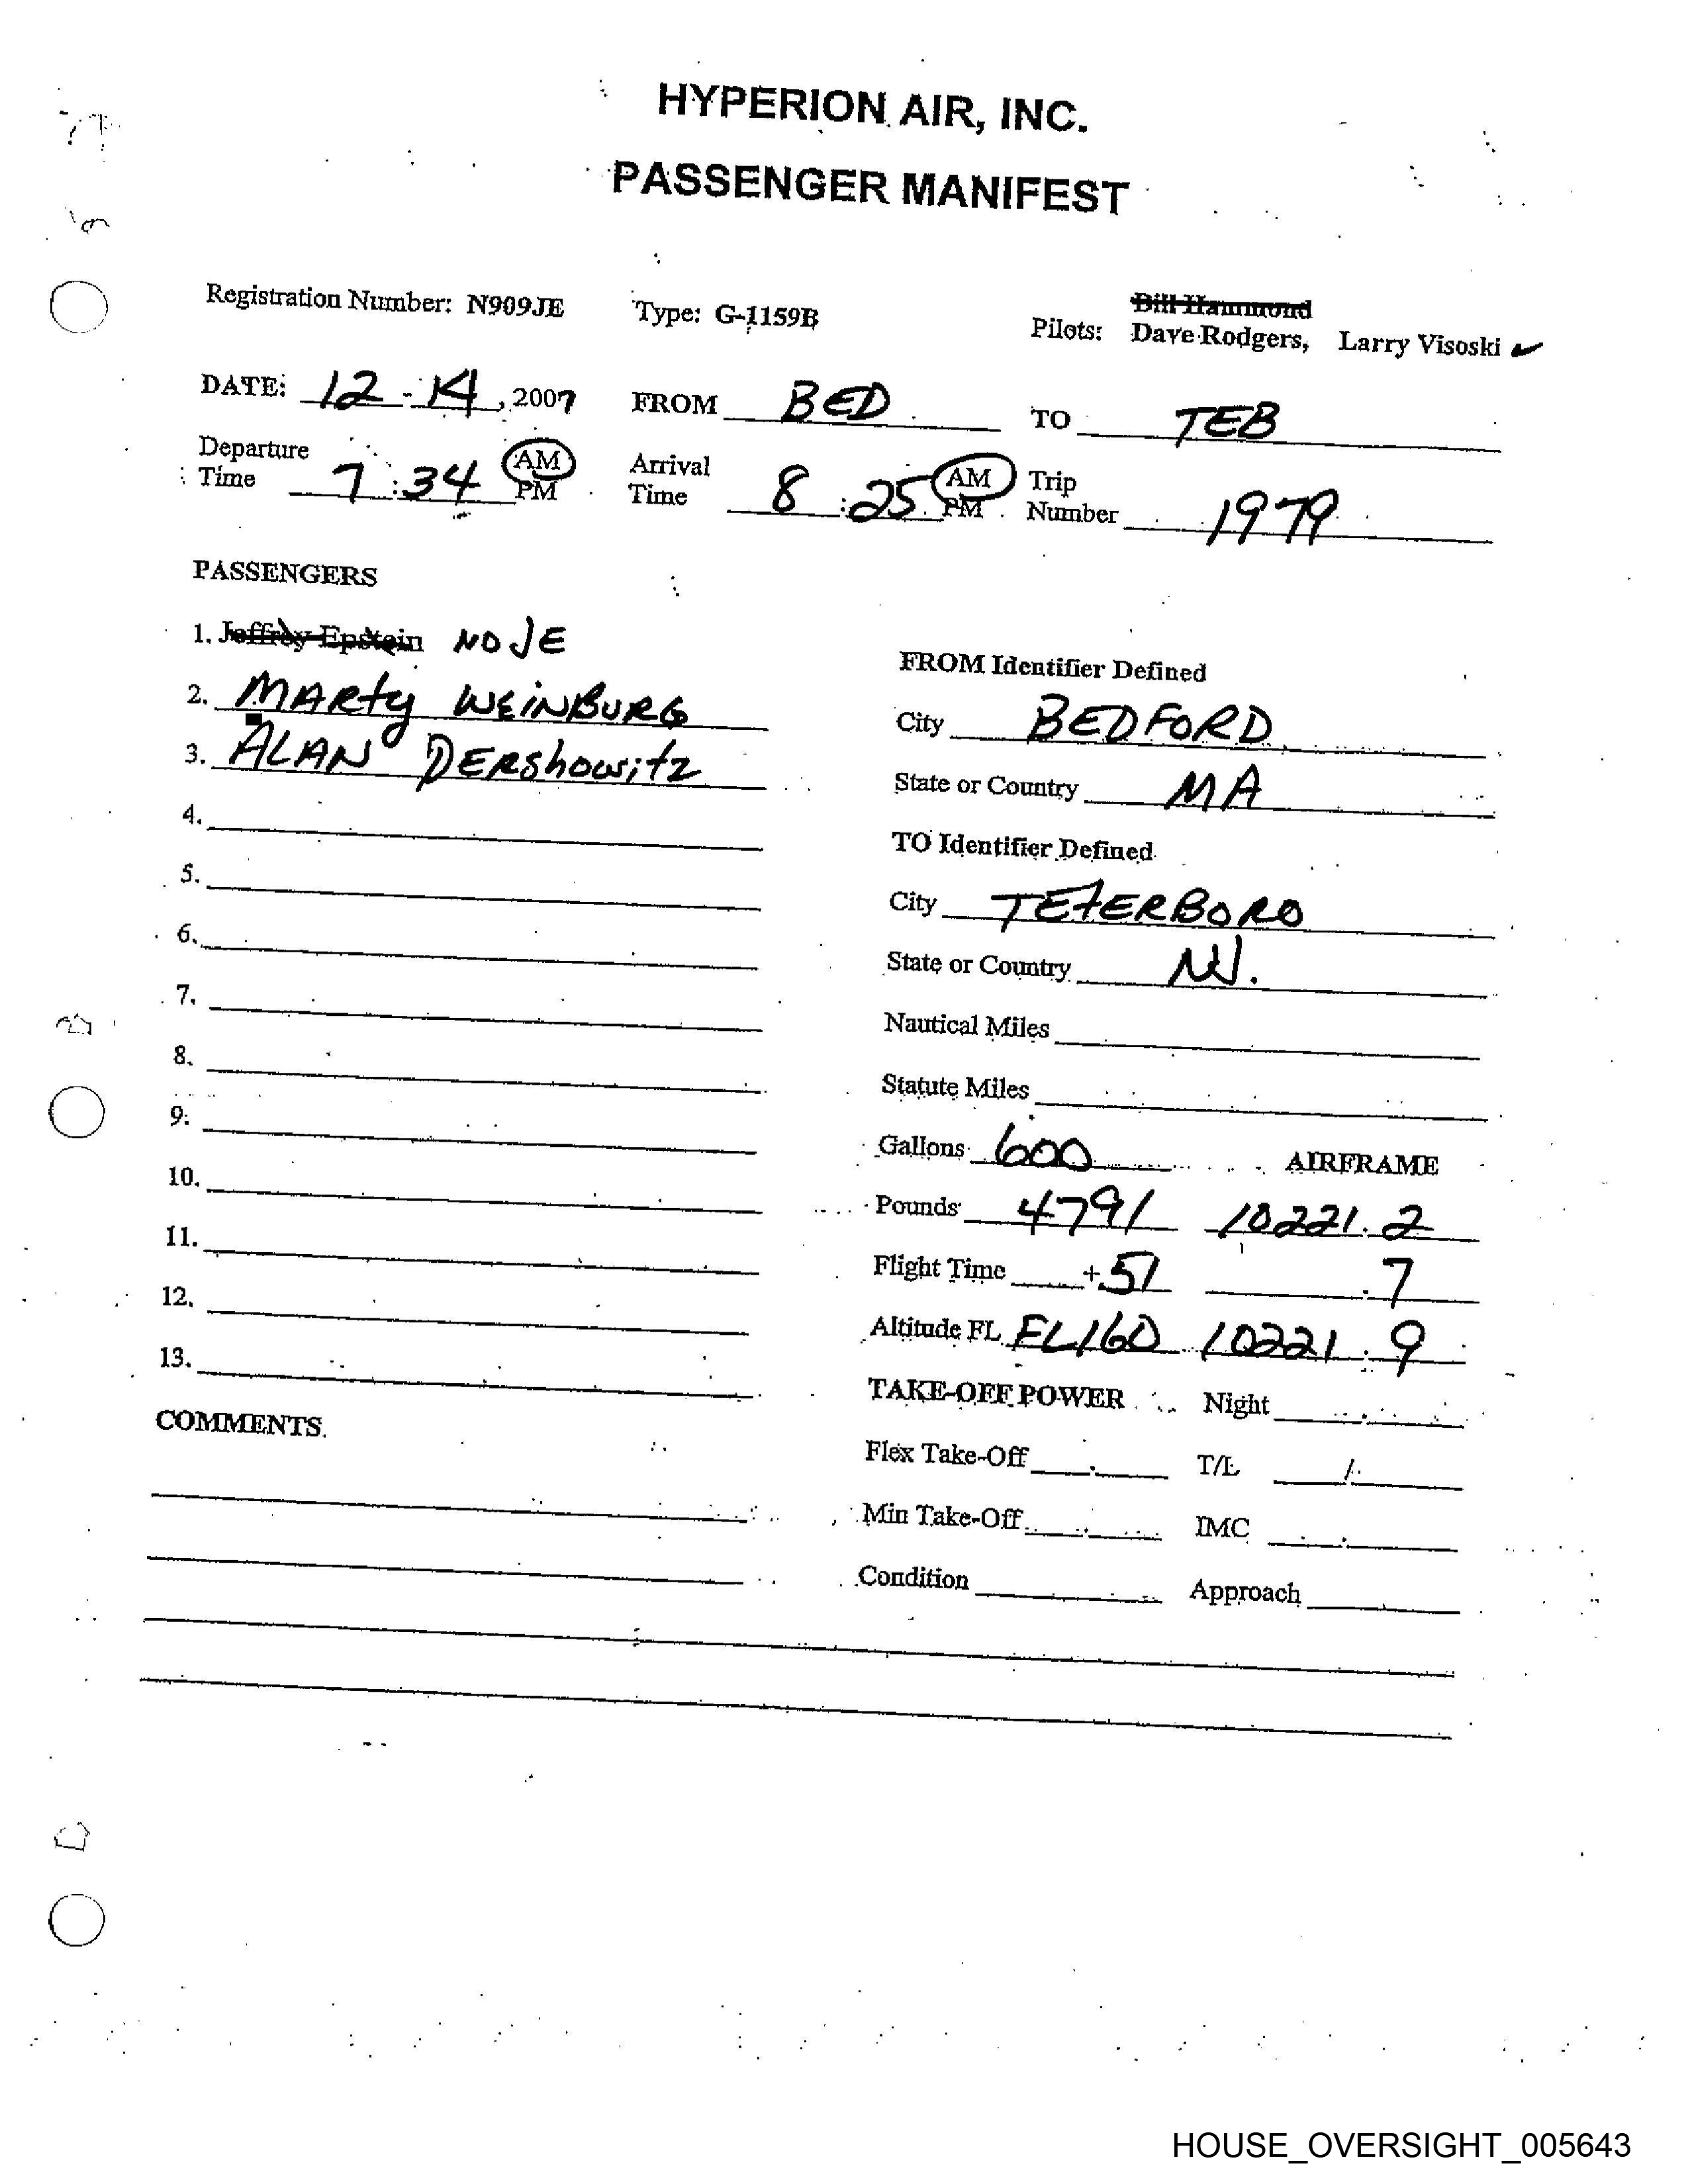 HYPERION AIR, INC.
PASSENGER MANIFEST
Registration Number: N909JE Type: G-1159B Pilots: Bill Hammond
Dave Rodgers, Larry Visoski ✓
DATE: 12-14, 2007 FROM BED TO TEB
Departure Time 7:34 AM PM Arrival Time 8:25 AM PM Trip Number 1979
PASSENGERS
1. Jeffrey Epstein NO JE
2. MARty WEiNBURG
3. ALAN DERshowitz
4.
5.
6.
7.
8.
9.
10.
11.
12.
13.
COMMENTS
FROM Identifier Defined
City BEDFORD
State or Country MA
TO Identifier Defined
City TETERBORO
State or Country NJ.
Nautical Miles
Statute Miles
Gallons 600 AIRFRAME
Pounds 4791 10221.2
Flight Time +51 .7
Altitude FL FL160 10221.9
TAKE-OFF POWER Night
Flex Take-Off T/L /
Min Take-Off IMC
Condition Approach
HOUSE_OVERSIGHT_005643